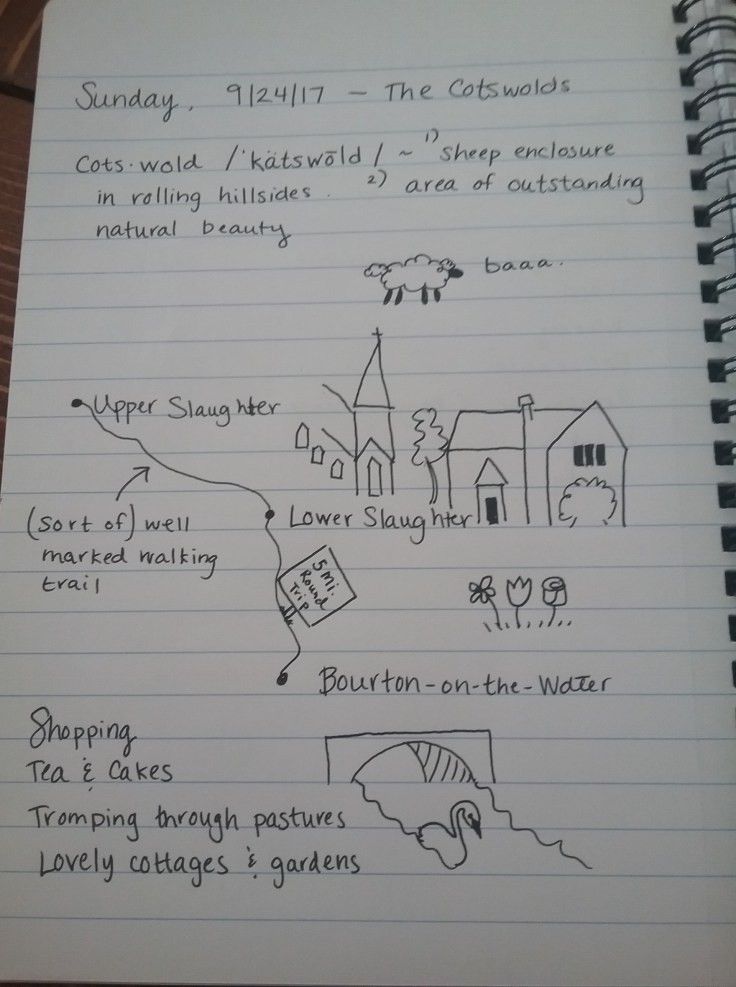 Sunday, 9/24/17 – The Cotswolds
Cots·wold /ˈkätswōld/ ~ 1) sheep enclosure
in rolling hillsides. 2) area of outstanding
natural beauty
baaa.
Upper Slaughter
(sort of) well
marked walking
trail
Lower Slaughter
5 mi.
Round
Trip
Bourton-on-the-Water
Shopping
Tea & Cakes
Tromping through pastures
Lovely cottages & gardens